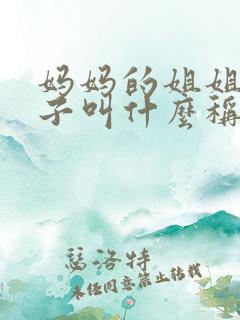 妈妈的姐姐
子叫什麽稱
瑟洛特
未经同意禁止转载